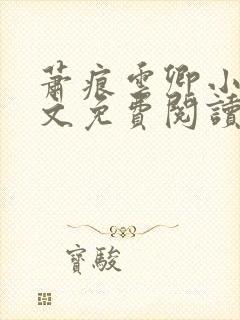 蕭痕雲卿小
文免費閱讀
寶駿